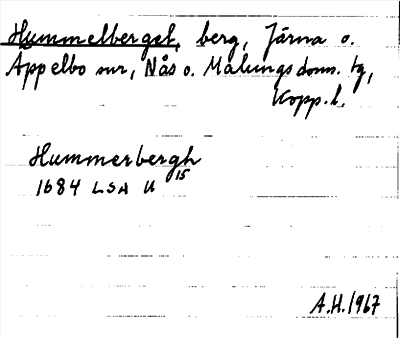 Hummelberget, berg, Järna o.
Äppelbo snr, Nås o. Malungs doms. tg,
Kopp. l.
Hummerbergh
1684 LSA U 15
A.H. 1967